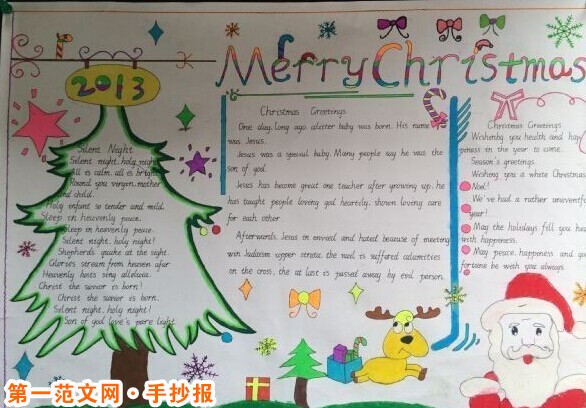 Merry Christmas
2013
Silent Night
Silent night, holy night
All is calm, all is bright
Round you virgin, mother
and child.
Holy infant so tender and mild.
Sleep in heavenly peace.
Sleep in heavenly peace.
Silent night, holy night!
Shepherds quake at the sight.
Glories stream from heaven afar
Heavenly hosts sing alleluia.
Christ the savior is born!
Christ the savior is born.
Silent night, holy night!
Son of god love's pure light
Christmas Greetings
One day, long ago, a letter baby was born. His name
was Jesus.
Jesus was a special baby. Many people say he was the
son of god.
Jesus has become great one teacher after growing up, he
has taught people loving god heartily, shown loving care
for each other
Afterwards, Jesus in envied and hated because of meeting
with Judaism upper strata, the nail is suffered calamities
on the cross, the at last is passed away by evil person.
Christmas Greetings
Wishing you health and hap
piness in the year to come.
Season's greetings.
Wishing you a white Christmas
Noel!
We've had a rather uneventful
year!
May the holidays fill you heart
with happiness.
May peace, happiness and go
fortune be with you always.
第一范文网·手抄报